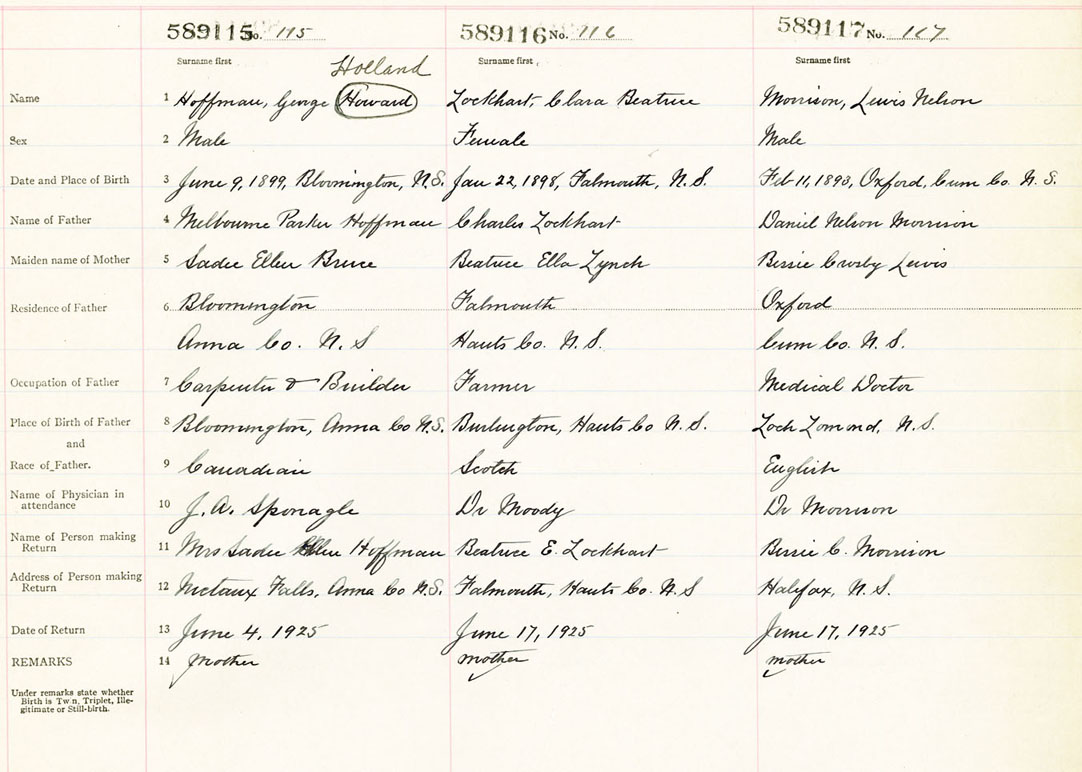 589115 No. 115 589116 No. 116 589117 No. 117
Surname first Surname first Surname first
Holland
Name 1 Hoffman, George Howard Lockhart, Clara Beatrice Morrison, Lewis Nelson
Sex 2 Male Female Male
Date and Place of Birth 3 June 9, 1899, Bloomington, N.S. Jan 22, 1898, Falmouth, N.S. Feb 11, 1893, Oxford, Cum Co. N.S.
Name of Father 4 Melbourne Parker Hoffman Charles Lockhart Daniel Nelson Morrison
Maiden name of Mother 5 Sadie Ellen Bruce Beatrice Ella Lynch Bessie Crosby Lewis
Residence of Father 6 Bloomington Falmouth Oxford
Anna Co. N.S Hants Co. N.S. Cum Co. N.S.
Occupation of Father 7 Carpenter & Builder Farmer Medical Doctor
Place of Birth of Father 8 Bloomington, Anna Co N.S. Burlington, Hants Co N.S. Loch Lomond, N.S.
and
Race of Father. 9 Canadian Scotch English
Name of Physician in
attendance 10 J. A. Sponagle Dr Moody Dr Morrison
Name of Person making
Return 11 Mrs Sadie Ellen Hoffman Beatrice E. Lockhart Bessie C. Morrison
Address of Person making
Return 12 Nictaux Falls, Anna Co N.S. Falmouth, Hants Co. N.S Halifax, N.S.
Date of Return 13 June 4, 1925 June 17, 1925 June 17, 1925
REMARKS 14 Mother mother mother
Under remarks state whether
Birth is Twin, Triplet, Ille-
gitimate or Still-birth.